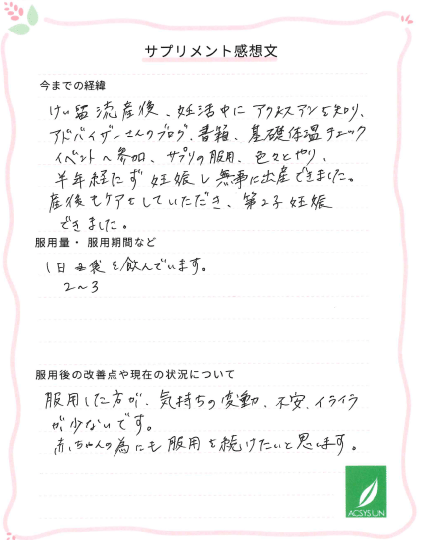 サプリメント感想文
今までの経緯
けい留流産後、妊活中にアクシスアンを知り、
アドバイザーさんのブログ、書籍、基礎体温チェック
イベントへ参加、サプリの服用、色々とやり、
半年経たず妊娠し無事に出産できました。
産後もケアをしていただき、第2子妊娠
できました。
服用量・服用期間など
1日 袋を飲んでいます。
2～3
服用後の改善点や現在の状況について
服用した方が、気持ちの変動、不安、イライラ
が少ないです。
赤ちゃんの為にも服用を続けたいと思います。
ACSYSUN